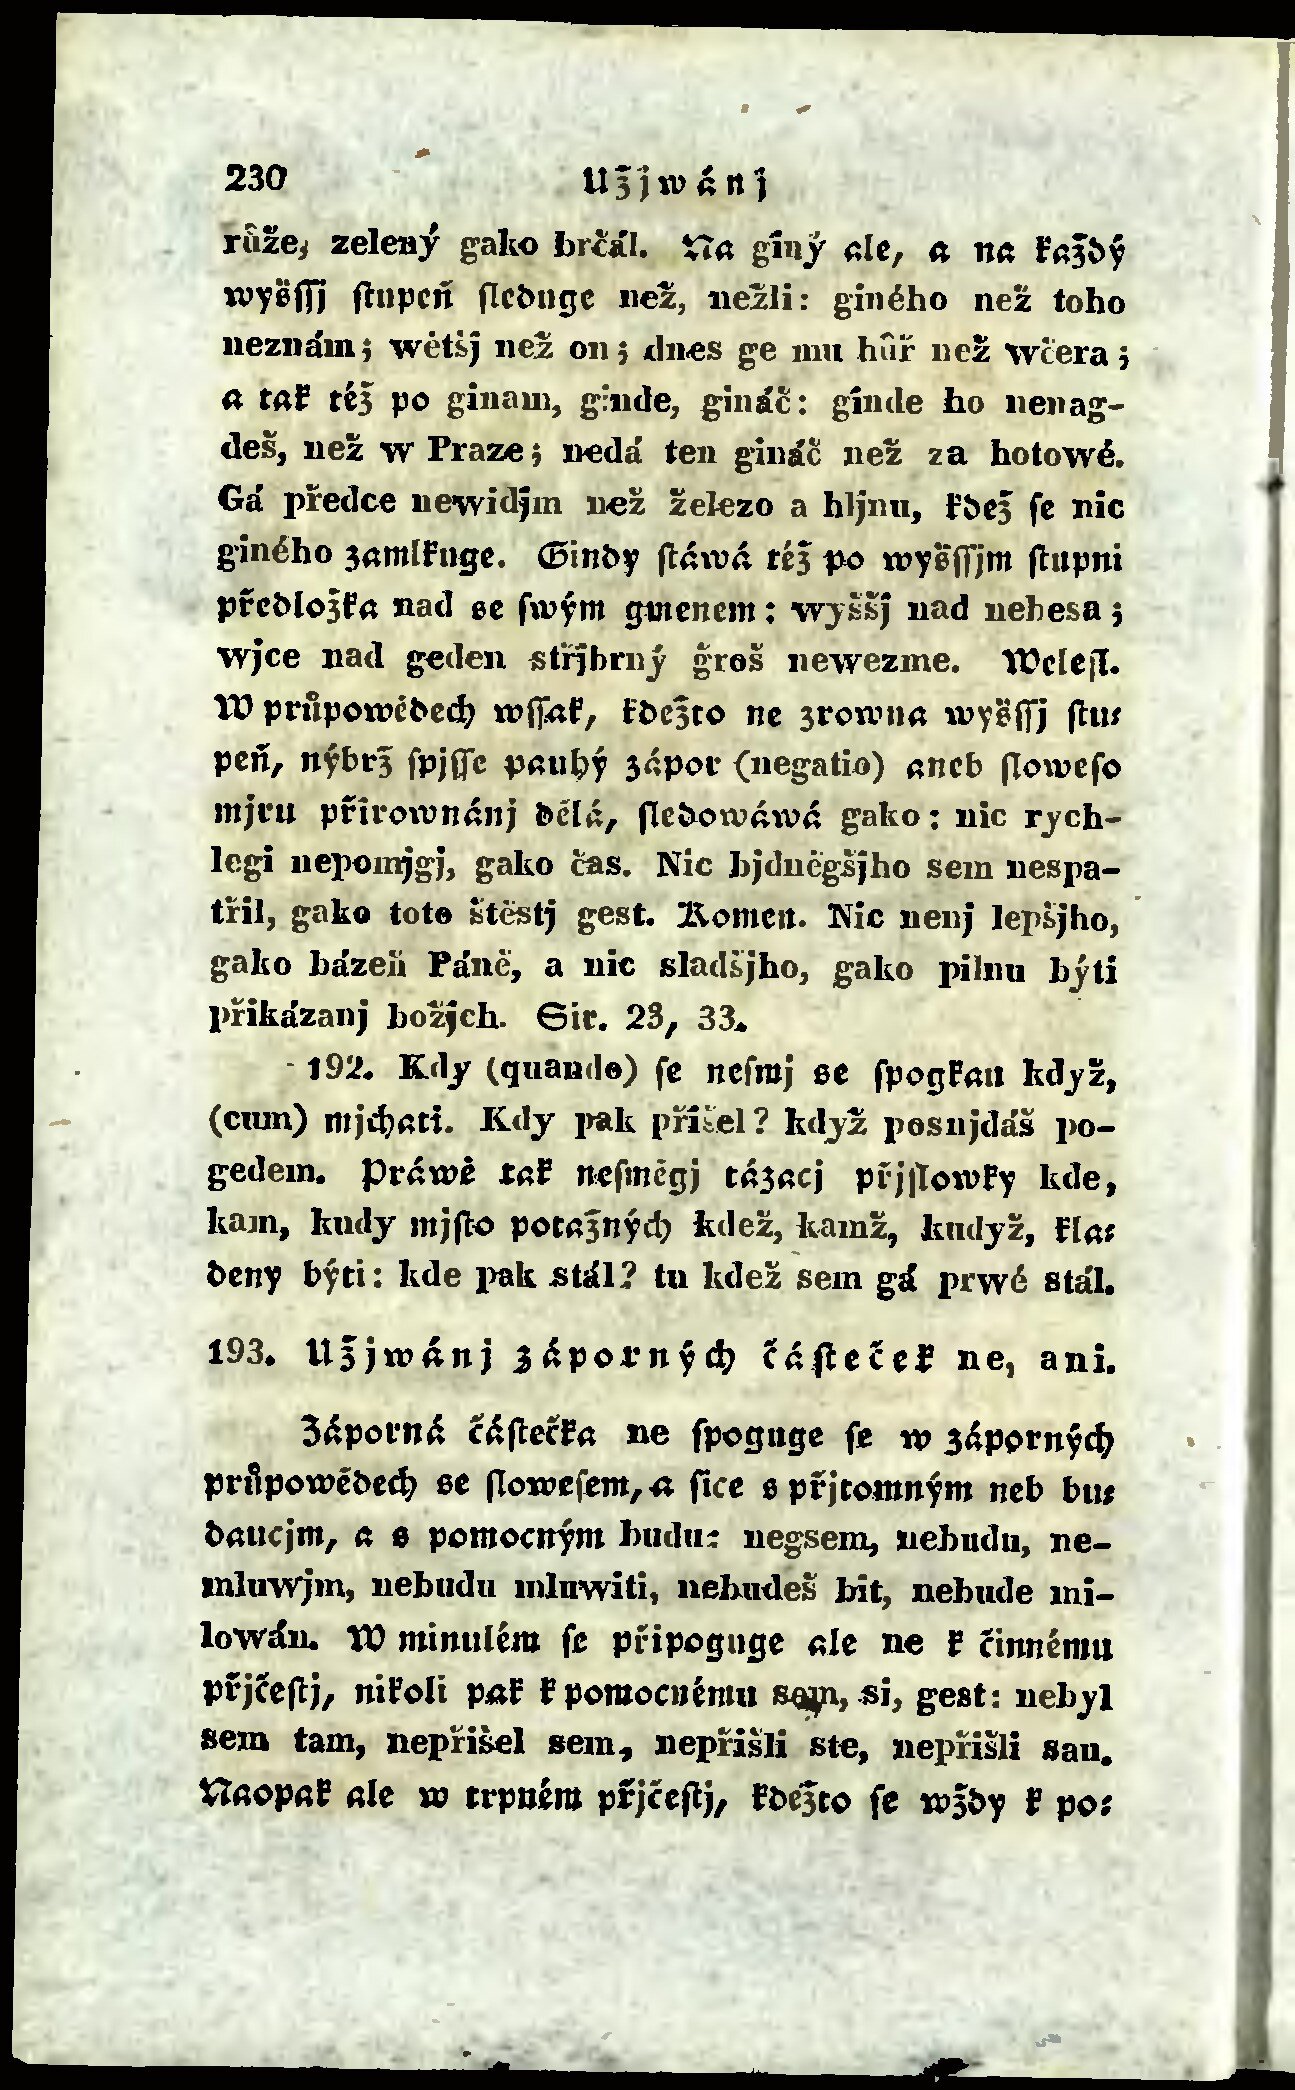 230 Užjwánj
růže, zelený gako brčál. Na giný ale, a na každý
wyšſſj ſtupeň ſleduge než, nežli: giného než toho
neznám; wětšj než on; dnes ge mu hůř než wčera;
a tak též po ginam, ginde, gináč: ginde ho nenag-
deš, než w Praze; nedá ten gináč než za hotowé.
Gá předce newidjm než železo a hljnu, kdež ſe nic
giného zamlkuge. Gindy ſtáwá též po wyšſſjm ſtupni
předložka nad se ſwým gmenem: wyššj nad nebesa;
wjce nad geden střjbrný groš newezme. Weleſl.
W průpowědech wſſak, kdežto ne zrowna wyšſſj ſtu-
peň, nýbrž ſpjſſe pauhý zápor (negatio) aneb ſloweſo
mjru přirownánj dělá, ſledowáwá gako: nic rych-
legi nepomjgj, gako čas. Nic bjdněgšjho sem nespa-
třil, gako toto štěstj gest. Komen. Nic nenj lepšjho,
gako bázeň Páně, a nic sladšjho, gako pilnu býti
přikázanj božjch. Sir. 23, 33.
192. Kdy (quando) ſe neſmj se ſpogkau když,
(cum) mjchati. Kdy pak přišel? když posnjdáš po-
gedem. Práwě tak neſměgj tázacj přjſlowky kde,
kam, kudy mjſto potažných kdež, kamž, kudyž, kla-
deny býti: kde pak stál? tu kdež sem gá prwé stál.
193. Užjwánj záporných čáſteček ne, ani.
Záporná čáſtečka ne ſpoguge ſe w záporných
průpowědech se ſloweſem, a ſice s přjtomným neb bu-
daucjm, a s pomocným budu: negsem, nebudu, ne-
mluwjm, nebudu mluwiti, nebudeš bit, nebude mi-
lowán. W minulém ſe připoguge ale ne k činnému
přjčeſtj, nikoli pak k pomocnému sem, si, gest: nebyl
sem tam, nepřišel sem, nepřišli ste, nepřišli sau.
Naopak ale w trpném přjčeſtj, kdežto ſe wždy k po-